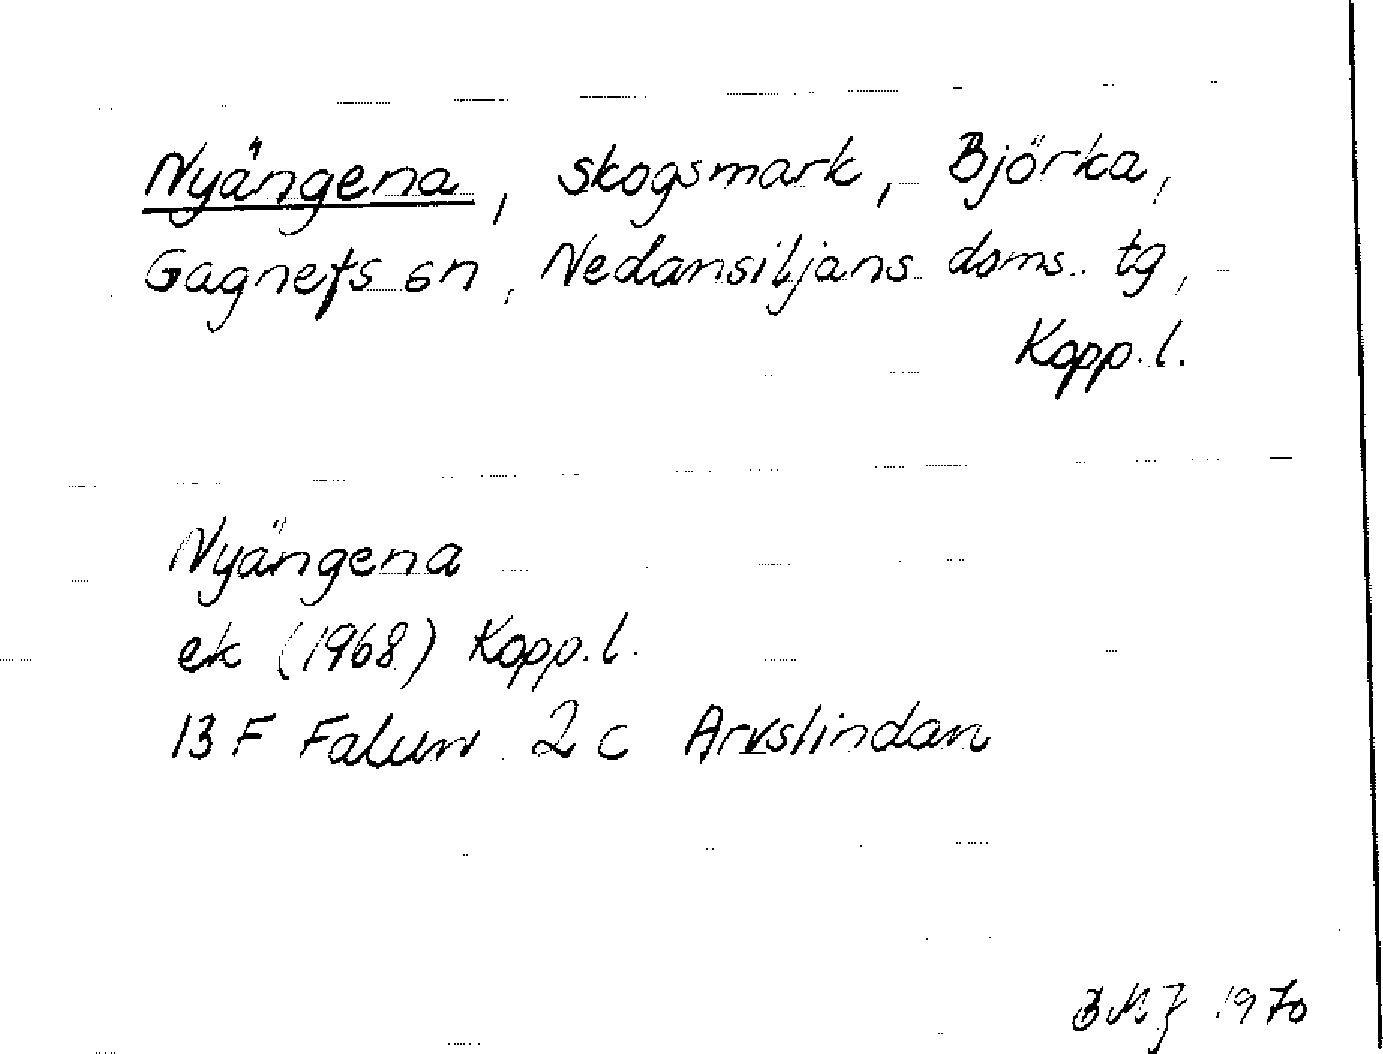 Nyängena, skogsmark, Björka,
Gagnefs sn, Nedansiljans doms. tg,
Kopp. l.
Nyängena
ek (1968) Kopp. l.
13 F Falun 2 c Arvslindan
BMJ 1970